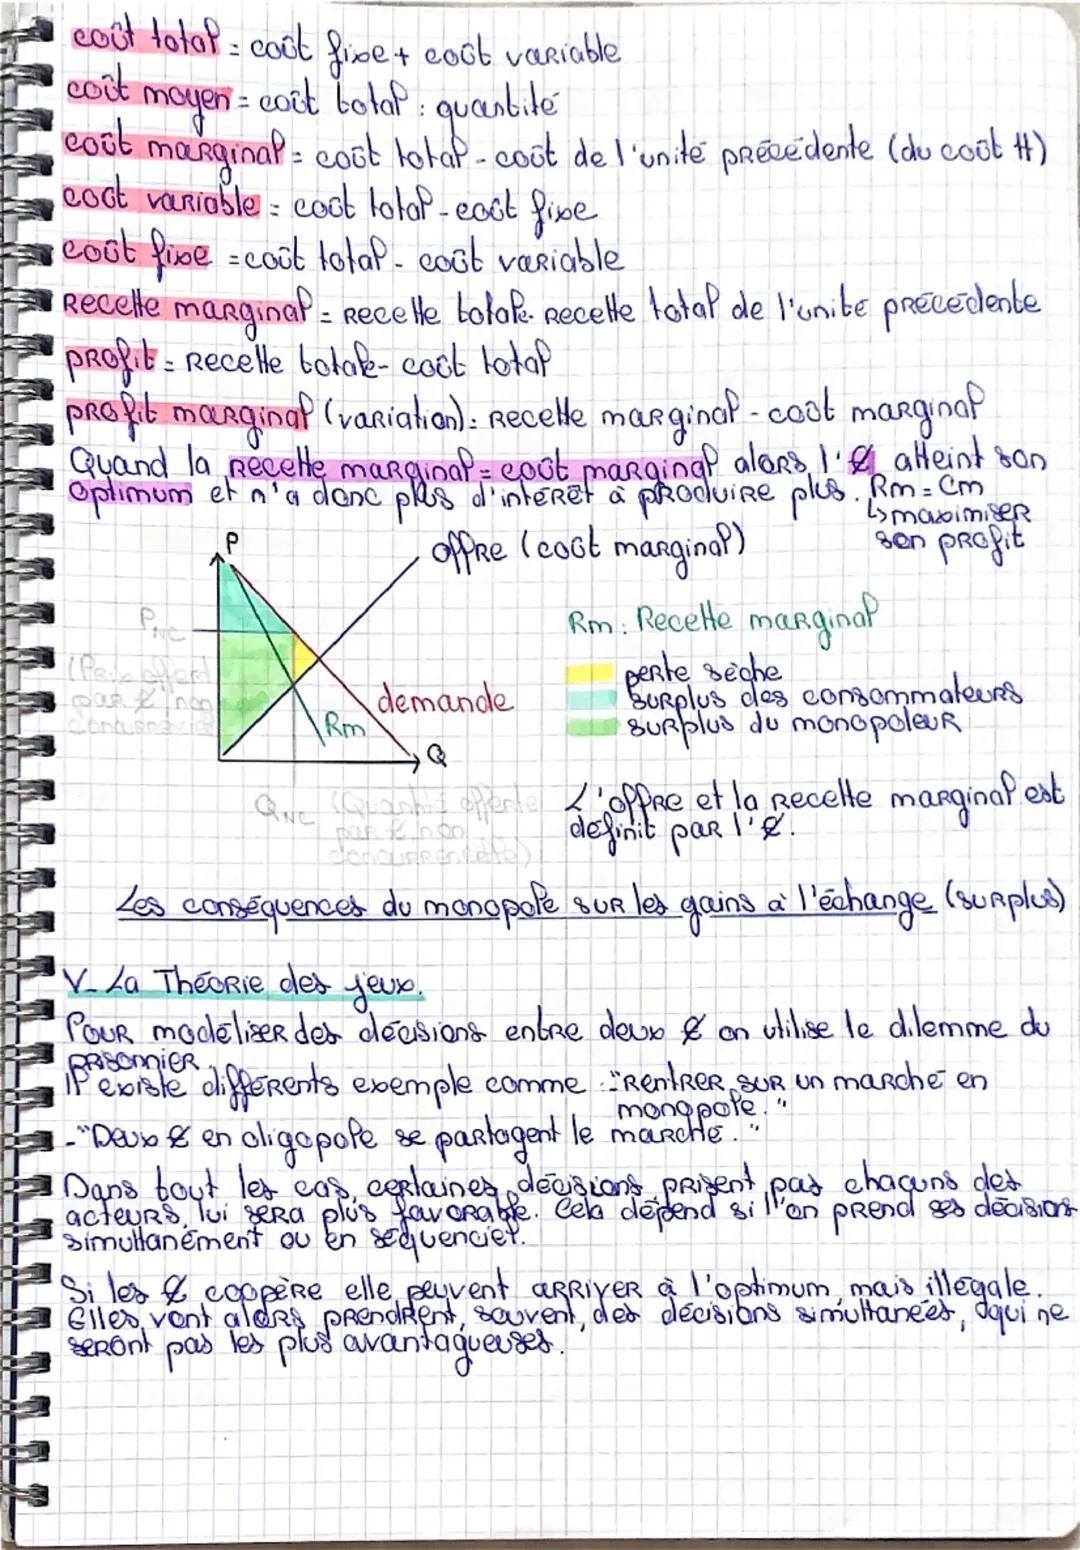 coût total = coût fixe + coût variable
coût moyen = coût total : quantité
coût marginal = coût total - coût de l'unité précédente (du coût tt)
coût variable = coût total - coût fixe
coût fixe = coût total - coût variable
Recette marginal = Recette totale - Recette total de l'unité précédente
profit = Recette totale - coût total
profit marginal (variation) = Recette marginal - coût marginal
Quand la Recette marginal = coût marginal alors l'€ atteint son
optimum et n'a donc plus d'intérêt à produire plus. Rm = Cm
↳ maximiser
son profit
P
offre (coût marginal)
PNC
(Prix offert
par € non
concurrentiel
Rm
demande
Q
QNC (Quantité offerte
par € non
concurrentiel)
Rm : Recette marginal
perte sèche
surplus des consommateurs
surplus du monopoleur
L'offre et la Recette marginal est
définit par l'€.
Les conséquences du monopole sur les gains à l'échange (surplus)
V- La Théorie des jeux.
Pour modéliser des décisions entre deux € on utilise le dilemme du
prisonnier.
Il existe différents exemple comme : "Rentrer sur un marché en
monopole."
- "Deux € en oligopole se partagent le marché."
Dans tout les cas, certaines décisions prisent pas chacuns des
acteurs, lui sera plus favorable. Cela dépend si l'on prend ses décisions
simultanément ou en séquenciel.
Si les € coopère elle peuvent arriver à l'optimum, mais illégale.
Elles vont alors prendrent, souvent, des décisions simultanées, qui ne
seront pas les plus avantageuses.